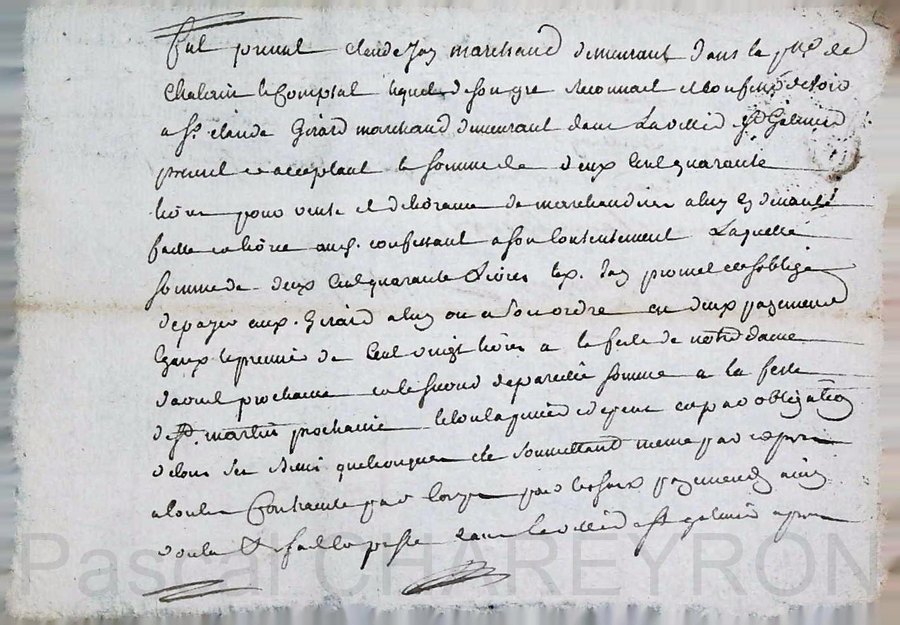 fut present claude Jay marchand demeurant dans la
Chalain le Comptal lequel de son gre reconnait et confesse devoir
a Sr. claude Girard marchand demeurant dans la ville de St Galmier
present et acceptant la somme de deux cent quarante
livres pour vente et delivrance de marchandises a luy
faitte confessant a son contentement Laquelle
somme de deux cent quarante Livres led. Jay promet et s'oblige
de payer aud. Girard a luy ou a son ordre en deux payements
Egaux le premier de Cent vingt livres a la feste de notre dame
daoust prochaine et le second de pareille somme a la feste
de St. martin prochaine le tout a peine de par obligation
de tous ses biens quelconques soumettant meme par
a toute Contrainte par
voulu & fait et passé dans la ville de St galmier
Pascal CHAREYRON